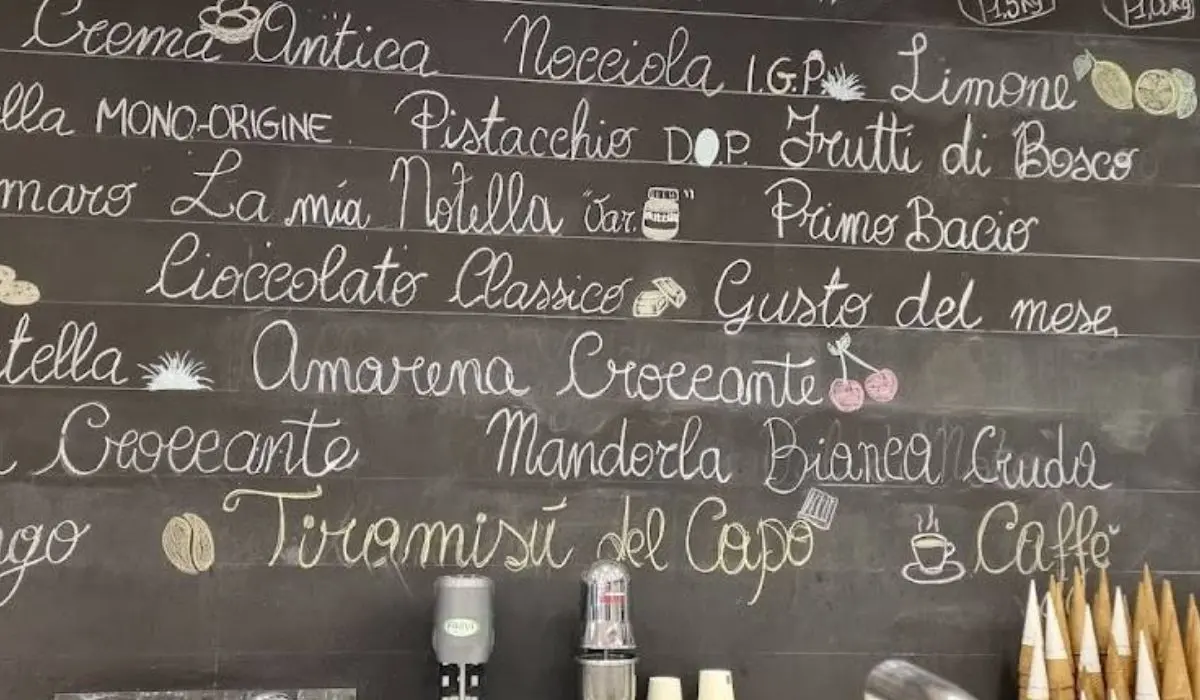 1,5Kg 1,00Kg
Crema Antica Nocciola I.G.P. Limone
lla MONO-ORIGINE Pistacchio D.O.P. Frutti di Bosco
maro La mia Notella "Var. " Primo Bacio
Cioccolato Classico Gusto del mese
tella Amarena Croccante
Croccante Mandorla Bianca Cruda
ngo Tiramisú del Capo Caffè